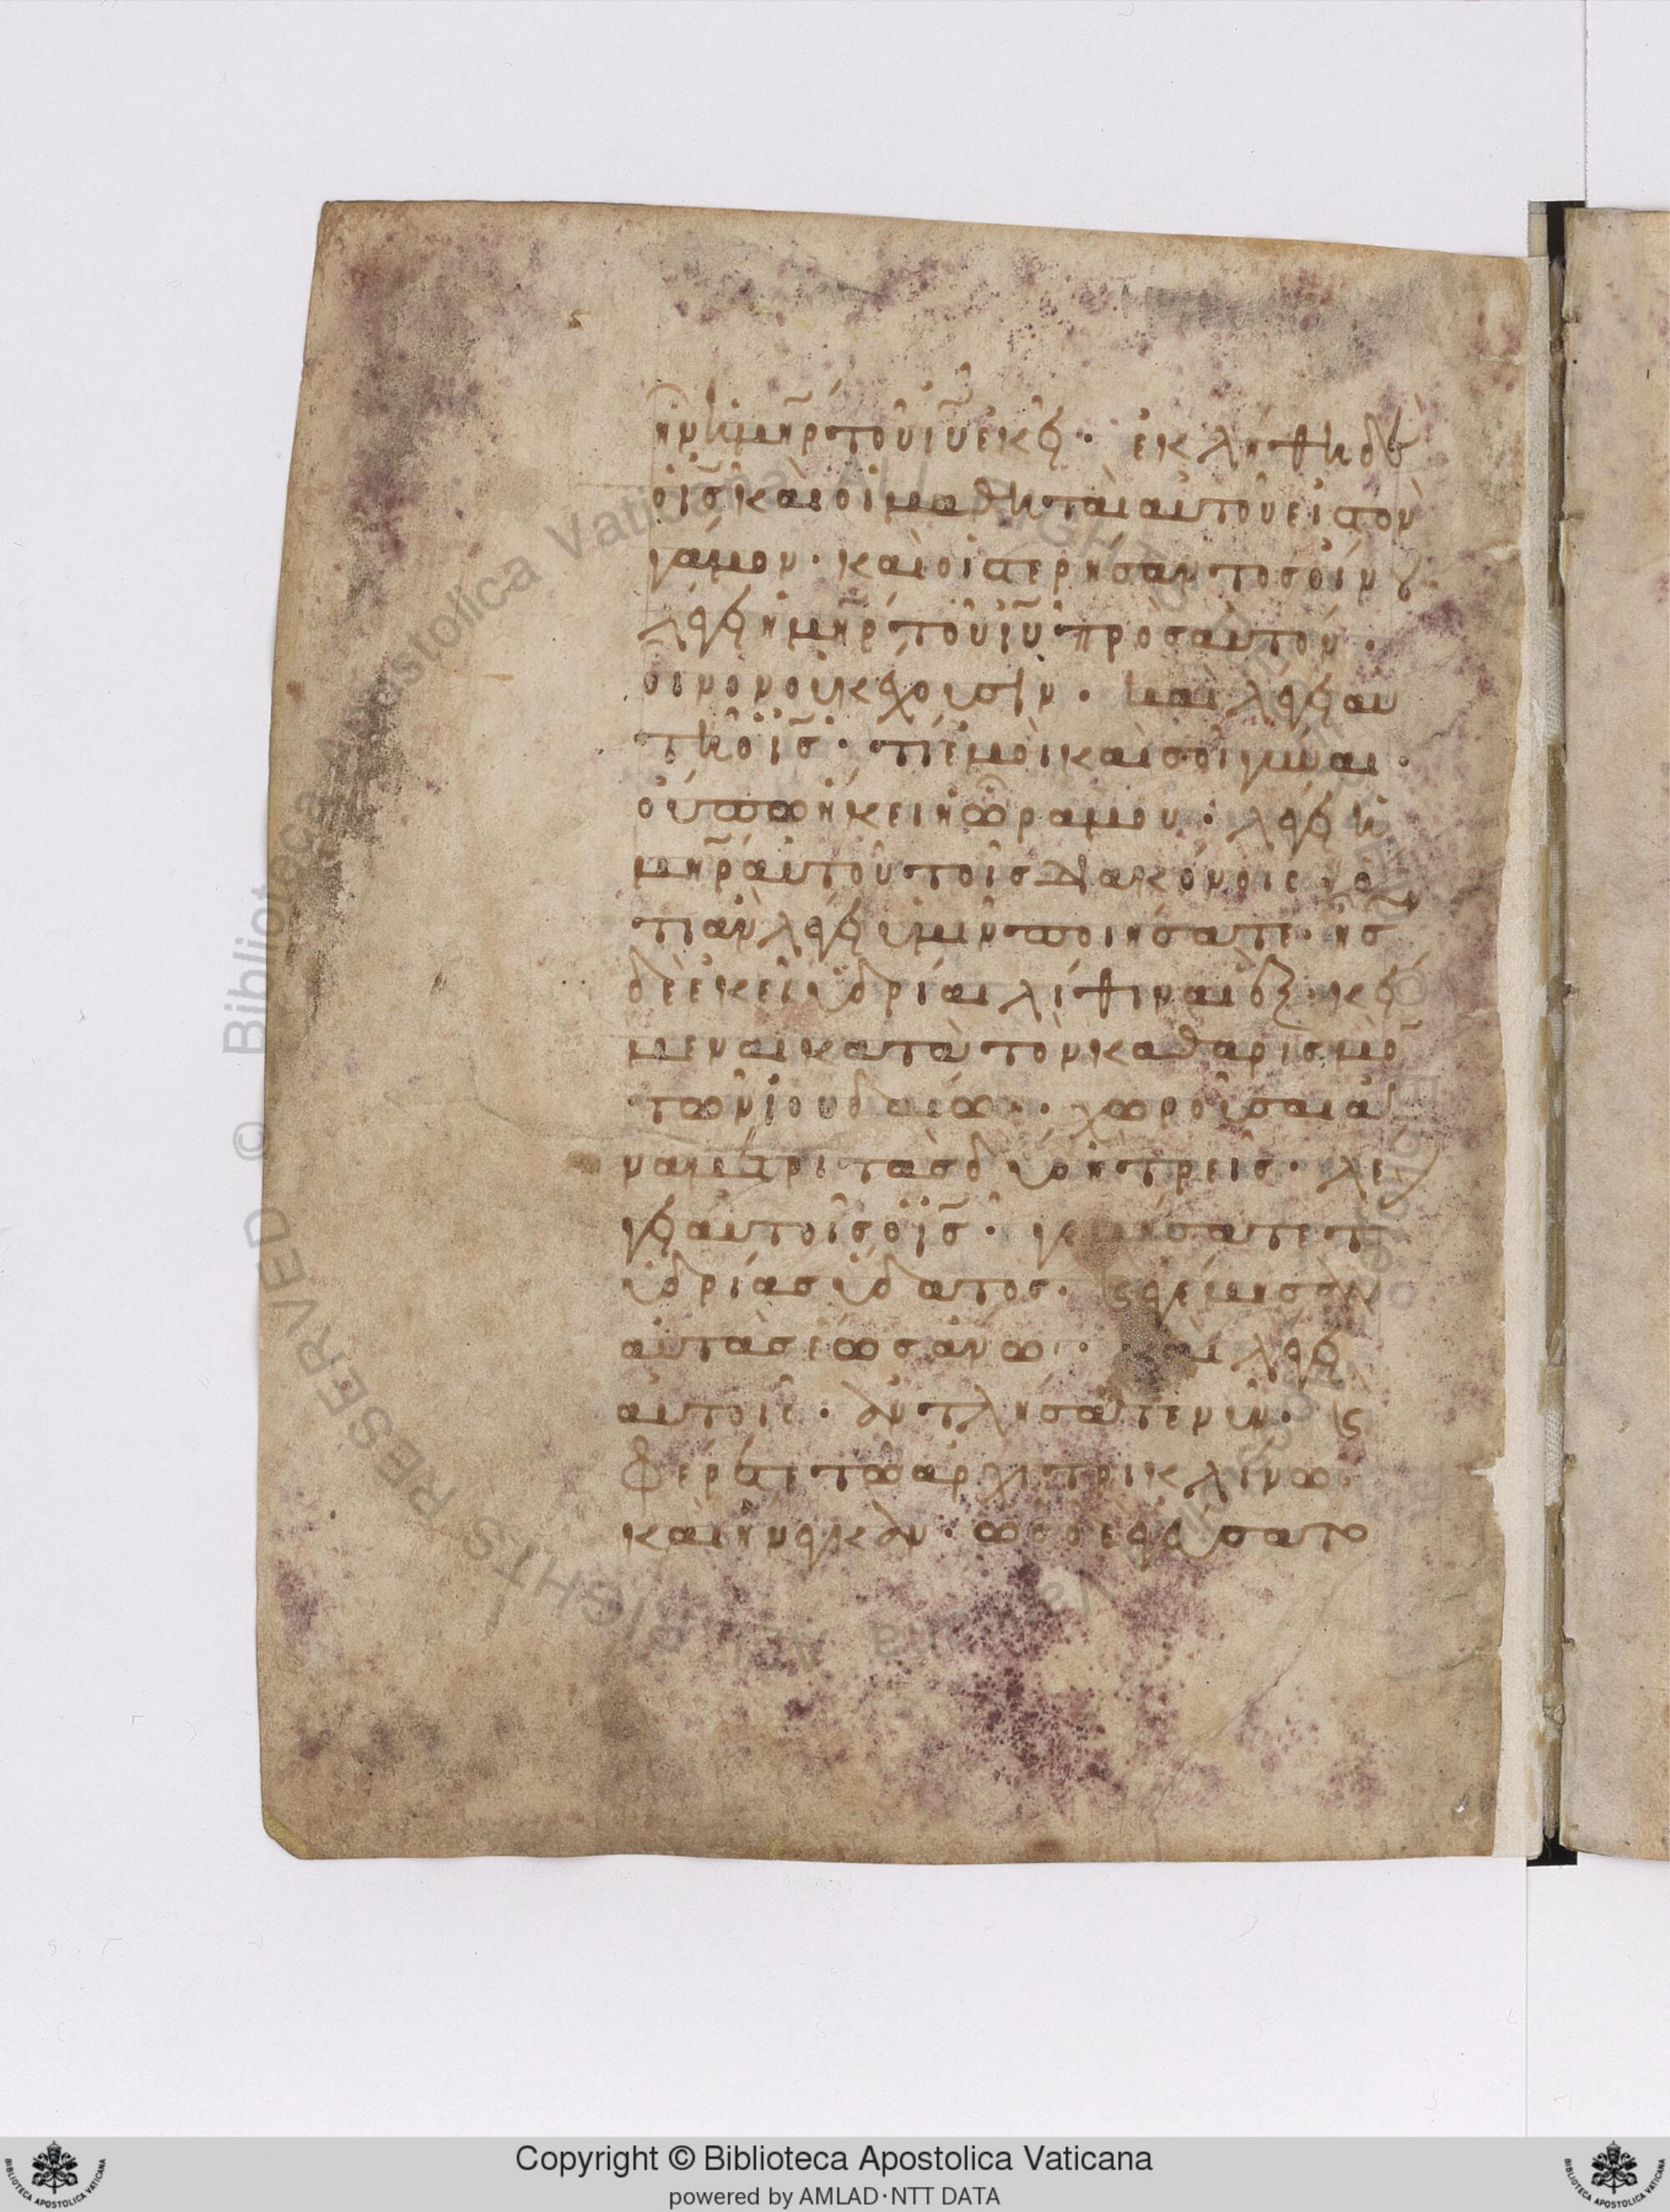 ἦν ἡ μη̅ρ τοῦ ιυ̅ ἐκεῖ· ἐκλήθη δὲ
ὁ ις̅ καὶ οἱ μαθηταὶ αὐτοῦ εἰς τὸν
γάμον· καὶ ὑστερήσαντος οἴνου
λέγει ἡ μη̅ρ τοῦ ιυ̅ πρὸς αὐτόν·
οἶνον οὐκ ἔχουσιν· καὶ λέγει αὐ
τῇ ὁ ις̅· τί ἐμοὶ καὶ σοὶ γύναι·
οὔπω ἥκει ἡ ὥρα μου· λέγει ἡ
μη̅ρ αὐτοῦ τοῖς διακόνοις· ὅ
τι ἂν λέγει ὑμῖν ποιήσατε· ἦσ
δὲ ἐκεῖ ὑδρίαι λίθιναι ἓξ· κεί
μεναι κατὰ τὸν καθαρισμὸ
τῶν ἰουδαίων· χωροῦσαι ἀ
νὰ μετριτὰς δύο ἢ τρεῖς· λέ
γει αὐτοῖς ὁ ις̅· γεμίσατε τ
ὑδρίας ὕδατος· ϗ ἐγέμησαν
αὐτὰς ἕως ἄνω· καὶ λέγει
αὐτοῖς· ἀντλήσατε νῦν· ϗ
φέρετε τῶ ἀρχιτρικλίνω·
καὶ ἤνεγκαν· ὡς δὲ ἐγεύσατο
Copyright © Biblioteca Apostolica Vaticana
powered by AMLAD·NTT DATA